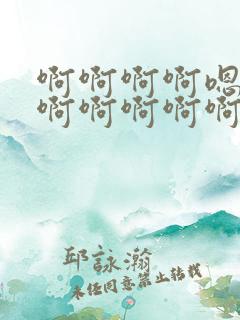 啊啊啊啊嗯
啊啊啊啊啊
邱詠瀚
未任同意禁止轉載